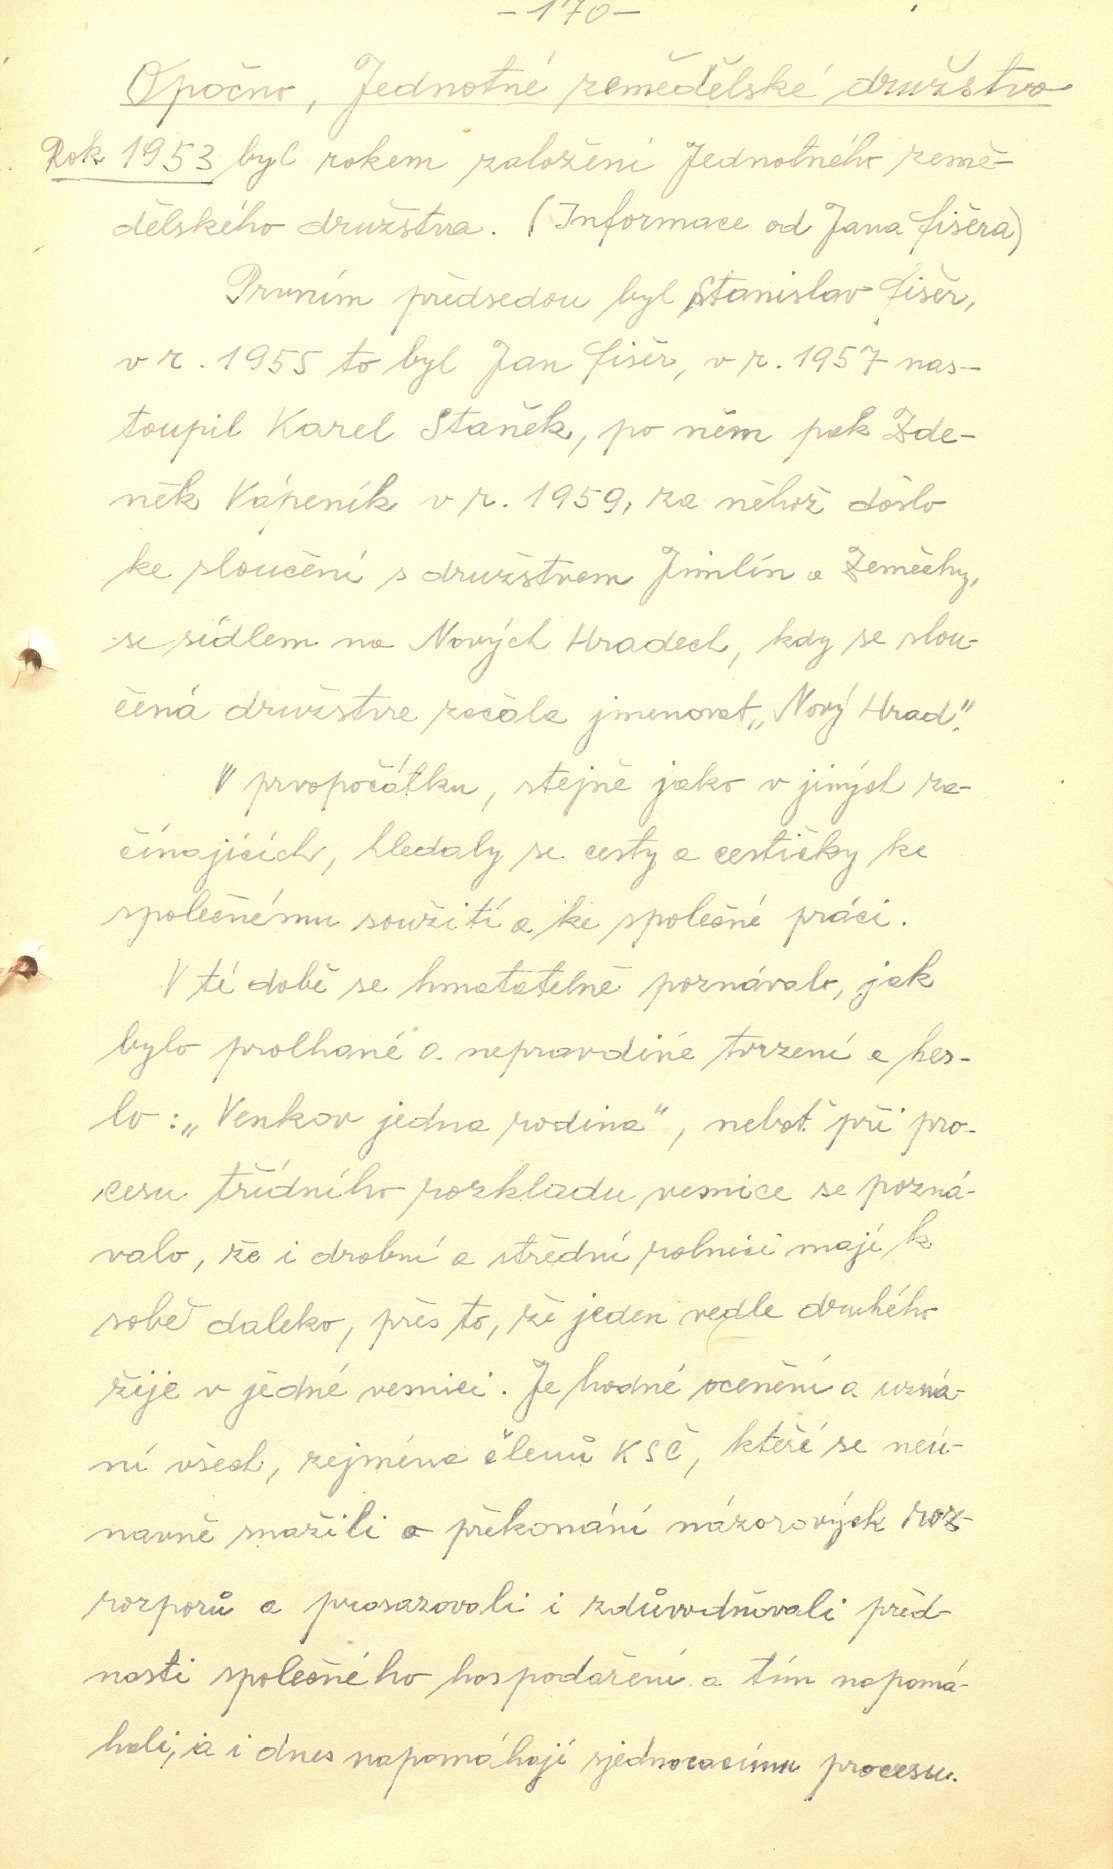 -170-
Opočno, Jednotné zemědělské družstvo
Rok 1953 byl rokem založení Jednotného země-
dělského družstva. (Informace od Jana Fišera)
Prvním předsedou byl Stanislav Fišer,
v r. 1955 to byl Jan Fišer, v r. 1957 nas-
toupil Karel Staněk, po něm pak Zde-
něk Vápeník v r. 1959, za něhož došlo
ke sloučení s družstvem Jimlín a Zeměchy,
se sídlem na Nových Hradech, kdy se slou-
čená družstva začala jmenovat „Nový Hrad“.
V prvopočátku, stejně jako v jiných za-
čínajících, hledaly se cesty a cestičky ke
společnému soužití a ke společné práci.
V té době se hmatatelně poznávalo, jak
bylo prolhané a nepravdivé tvrzení a hes-
lo: „Venkov jedna rodina“, neboť při pro-
cesu třídního rozkladu vesnice se pozná-
valo, že i drobní a střední rolníci mají k
sobě daleko, přes to, že jeden vedle druhého
žije v jedné vesnici. Je hodné ocenění a uzná-
ní všech, zejména členů KSČ, kteří se neú-
navně snažili o překonání názorových roz-
rozporů a prosazovali i zdůvodňovali před-
nosti společného hospodaření a tím napomá-
hali, a i dnes napomáhají sjednocacímu procesu.